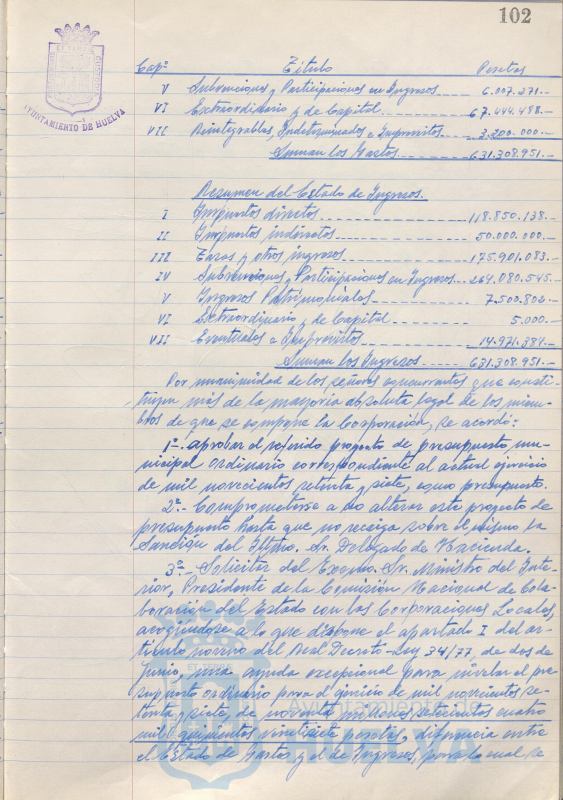 102
AYUNTAMIENTO DE HUELVA
Capº Título Pesetas
V Subvenciones y Participaciones en Ingresos 6.007.271.-
VI Extraordinario y de Capital 67.444.488.-
VII Reintegrables, Indeterminados e Imprevistos 3.200.000.-
Suman los Gastos 631.308.951.-
Resumen del Estado de Ingresos.
I Impuestos directos 118.850.138.-
II Impuestos indirectos 50.000.000.-
III Tasas y otros ingresos 175.901.083.-
IV Subvenciones y Participaciones en Ingresos 264.080.545.-
V Ingresos Patrimoniales 7.500.802.-
VI Extraordinario y de Capital 5.000.-
VII Eventuales e Imprevistos 14.971.384.-
Suman los Ingresos 631.308.951.-
Por unanimidad de los señores concurrentes que consti-
tuyen más de la mayoría absoluta legal de los miem-
bros de que se compone la Corporación, se acordó:
1º.- aprobar el referido proyecto de presupuesto mu-
nicipal ordinario correspondiente al actual ejercicio
de mil novecientos setenta y siete, como presupuesto.
2º.- Comprometerse a no alterar este proyecto de
presupuesto hasta que no recaiga sobre el mismo la
Sanción del Iltmo. Sr. Delegado de Hacienda.
3º.- Solicitar del Excmo. Sr. Ministro del Inte-
rior, Presidente de la Comisión Nacional de Cola-
boración del Estado con las Corporaciones Locales,
acogiéndose a lo que dispone el apartado I del ar-
tículo noveno del Real Decreto-Ley 34/77 de dos de
Junio, una ayuda excepcional para nivelar el pre-
supuesto ordinario para el ejercicio de mil novecientos se-
tenta y siete de noventa millones setecientas cuatro
mil quinientas veintisiete pesetas, diferencia entre
el Estado de Gastos y el de Ingresos, para lo cual se
Ayuntamiento de
HUELVA